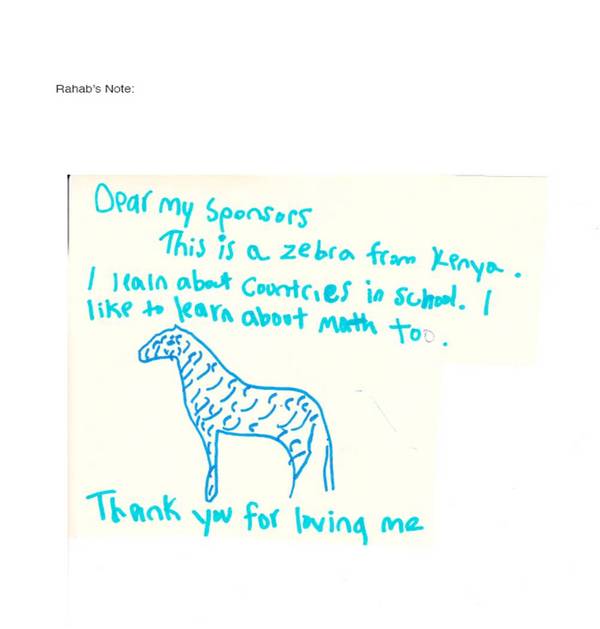 Rahab's Note:
Dear my Sponsors
This is a zebra from Kenya.
I learn about Countries in school. I
like to learn about Math too.
Thank you for loving me